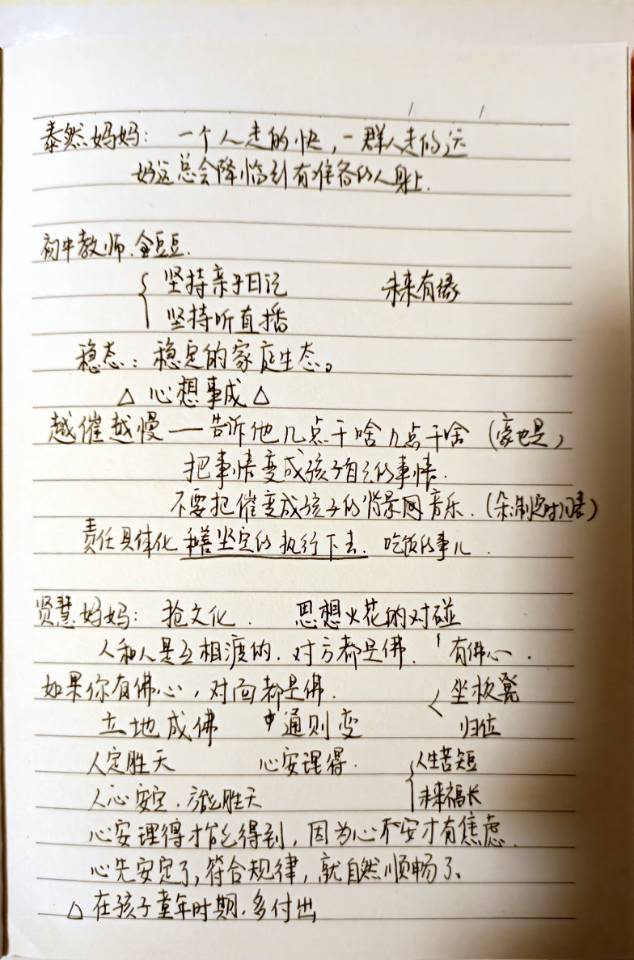 泰然妈妈：一个人走的快，一群人走的远
好运总会降临到有准备的人身上.
初中教师.金豆豆.
坚持亲子日记 未来有缘
坚持听直播
稳态：稳定的家庭生态。
△ 心想事成 △
越催越慢——告诉他几点干啥几点干啥（豪也是）
把事情变成孩子自己的事情.
不要把催变成孩子的背景网音乐.（制定时间表）
责任具体化 和善坚定的执行下去. 吃饭的事儿.
贤慧妈妈：抢文化. 思想火花的对碰
人和人是互相渡的.对方都是佛. 有佛心.
如果你有佛心，对面都是佛. 坐板凳
立地成佛 通则变 归位
人定胜天 心安理得. 人生苦短
人心安定.就能胜天 未来福长
心安理得才能得到，因为心不安才有焦虑.
心先安定了，符合规律，就自然顺畅了.
△ 在孩子童年时期.多付出